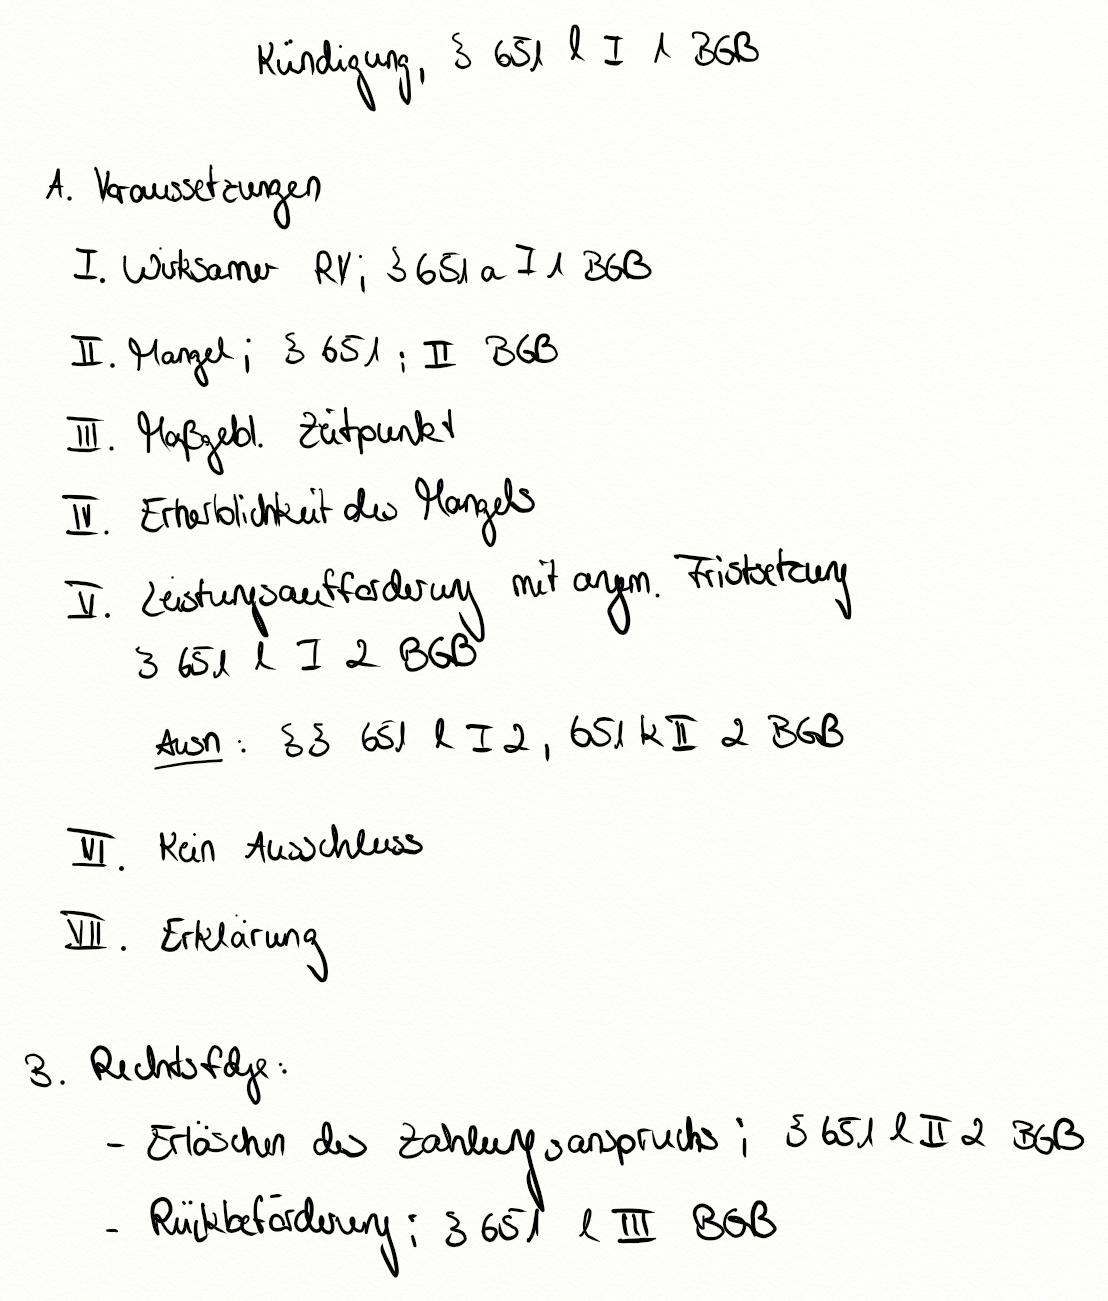 Kündigung, § 651 l I 1 BGB
A. Voraussetzungen
I. Wirksamer RV; § 651 a I 1 BGB
II. Mangel; § 651 i II BGB
III. Maßgebl. Zeitpunkt
IV. Erherblichkeit des Mangels
V. Leistungsaufforderung mit angm. Fristsetzung
§ 651 l I 2 BGB
Ausn: §§ 651 l I 2, 651 k II 2 BGB
VI. Kein Ausschluss
VII. Erklärung
B. Rechtsfolge:
- Erlöschen des Zahlungsanspruchs; § 651 l II 2 BGB
- Rückbeförderung; § 651 l III BGB